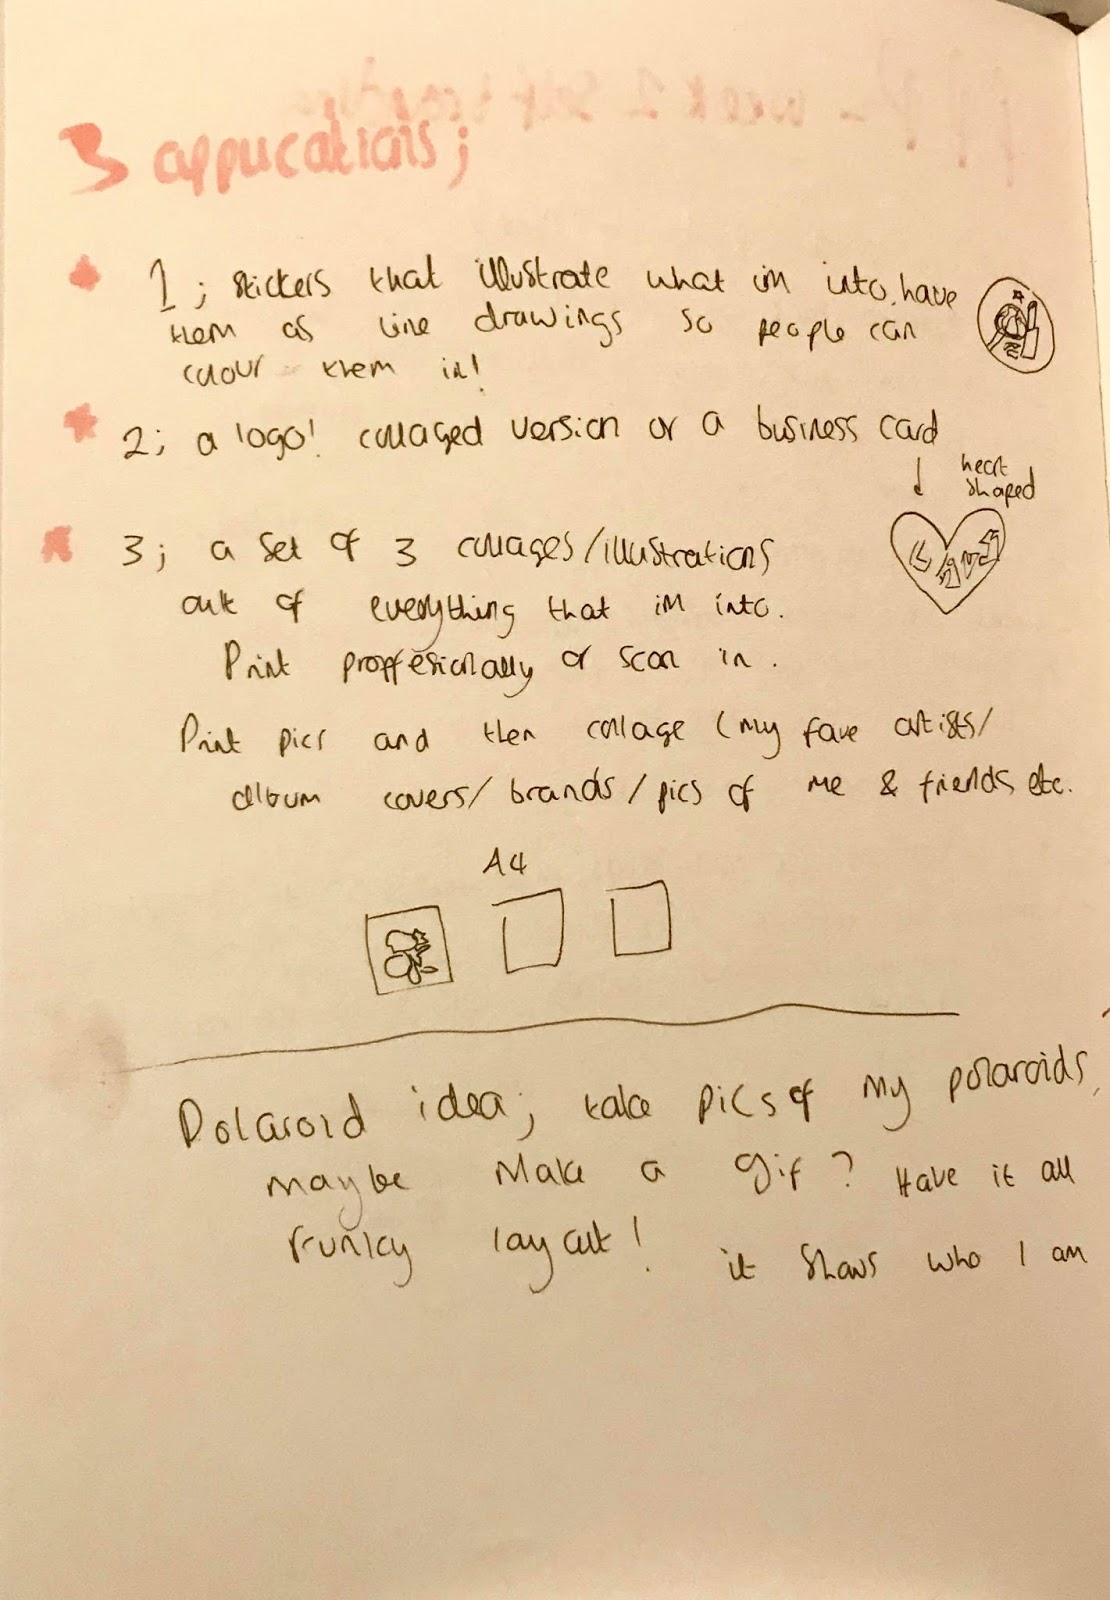 3 applications;
1; stickers that illustrate what im into, have
them as line drawings so people can
colour them in!
2; a 'logo! collaged version or a business card
heart
shaped
3; a set of 3 collages/illustrations
out of everything that im into.
Print proffesionally or scan in.
Print pics and then collage (my fave artists/
album covers/brands/pics of me & friends etc.
A4
Polaroid idea; take pics of my polaroids,
maybe make a gif? Have it all
funky layout! it shows who I am